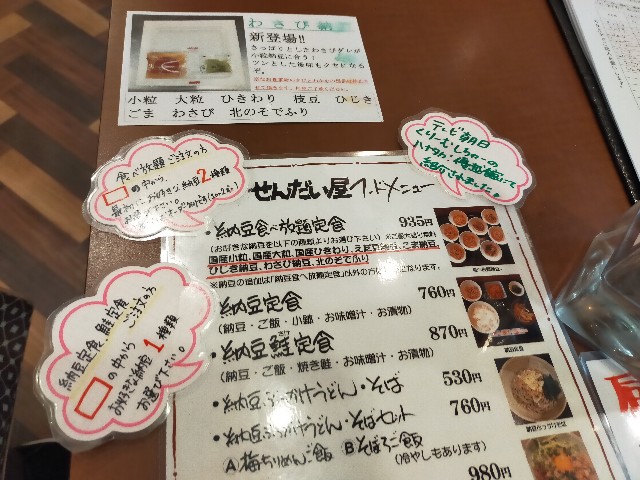 わさび納
新登場!!
さっぱりとしたわさびダレが
小粒納豆に合う!
ツンとした後味もクセになる
ぞ。
小粒 大粒 ひきわり 枝豆 ひじき
ごま わさび 北のそでふり
食べ放題ご注文の方
□の中から、
最初にお好きな納豆2種類
テレビ朝日
くりぃむしちゅーの
ハナタカ!優越館にて
紹介されました。
せんだい屋フードメニュー
・納豆食べ放題定食 935円
(お好きな納豆を以下の種類よりお選び下さい)
国産小粒、国産大粒、国産ひきわり、えだ豆納豆、ごま納豆、
ひじき納豆、わさび納豆、北のそでふり
・納豆定食 760円
(納豆・ご飯・小鉢・お味噌汁・お漬物)
・納豆鮭定食 870円
(納豆・ご飯・焼き鮭・お味噌汁・お漬物)
・納豆ぶっかけうどん・そば 530円
・納豆ぶっかけうどん・そばセット 760円
Ⓐ梅ちりめんご飯 Ⓑそぼろご飯
(冷やしもあります)
980円
納豆定食、鮭定食
ご注文の方
□の中から
お好きな納豆1種類
お選び下さい。